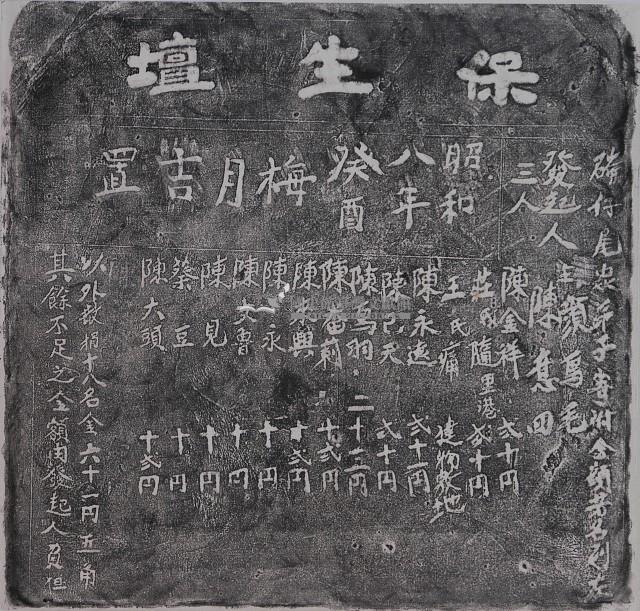 保生壇
磚仔尾眾弟子寄附金額芳名列左
發起人
三人
顏馬毛
陳意四
昭和
八年
癸酉
梅
月
吉
置
陳金祥 弍十円
隨里港 弍十円
王氏 建物敷地
陳永遠 弍十二円
陳己天 弍十円
陳烏羽 二十二円
陳 十弍円
陳 興 十弍円
陳永 十一円
陳文魯 十一円
陳見 十円
蔡豆 十円
陳大頭 十弍円
以外數捐十八名金六十一円五角
其餘不足之全額由發起人負担